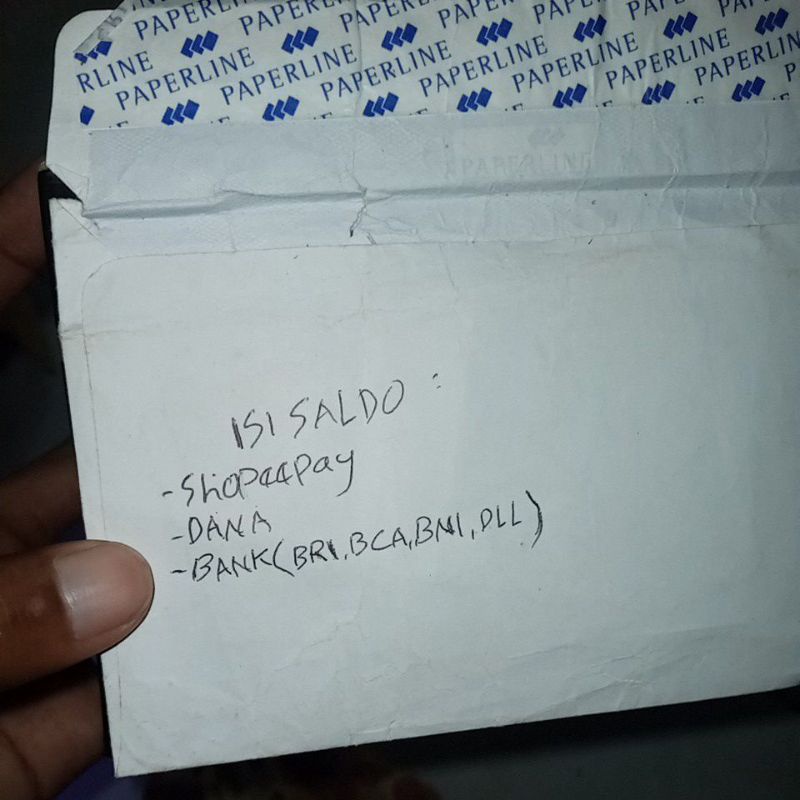 PAPERLINE PAPERLINE
RLINE PAPERLINE PAPERLINE PAPERLINE
PAPERLINE PAPERLINE PAPERLINE PAPERLINE
PAPERLINE
ISI SALDO :
- ShoPeePay
- DANA
- BANK (BRI, BCA, BNI, DLL)